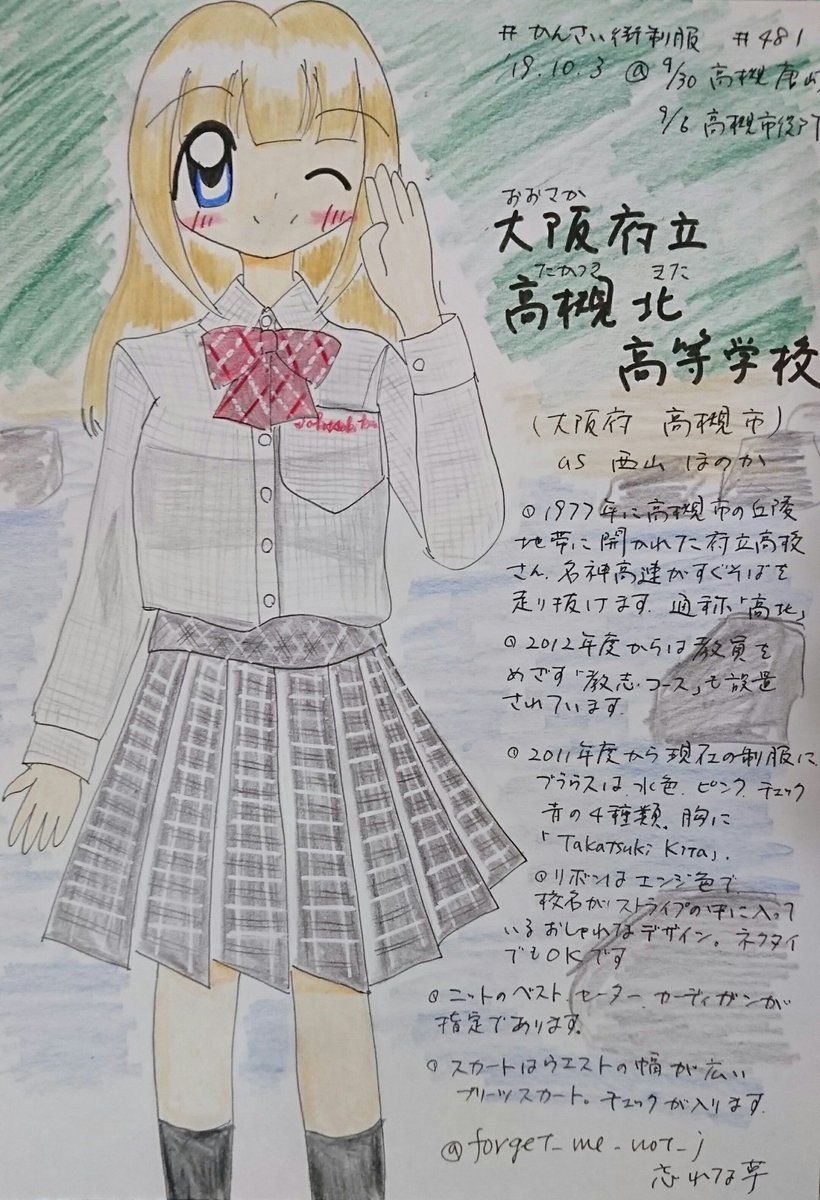 #かんさい街制服 #481
'19.10.3 @ 9/30 高槻
9/6 高槻市役所
おおさか
大阪府立
たかつき きた
高槻北
高等学校
(大阪府 高槻市)
as 西山 ほのか
1977年に高槻市の丘陵
地帯に開かれた府立高校
さん。名神高速がすぐそばを
走り抜けます。通称「高北」
2012年度からは教員を
めざす「教志コース」も設置
されています。
2011年度から現在の制服に
ブラウスは、水色、ピンク、チェック
青の4種類。胸に
「Takatsuki Kita」.
リボンはエンジ色で
校名がストライプの中に入って
いるおしゃれなデザイン。ネクタイ
でもOKです
ニットのベスト、セーター、カーディガンが
指定であります。
スカートはウエストの幅が広い
プリーツスカート。チェックが入ります。
@forget_me_not_j
忘れな草